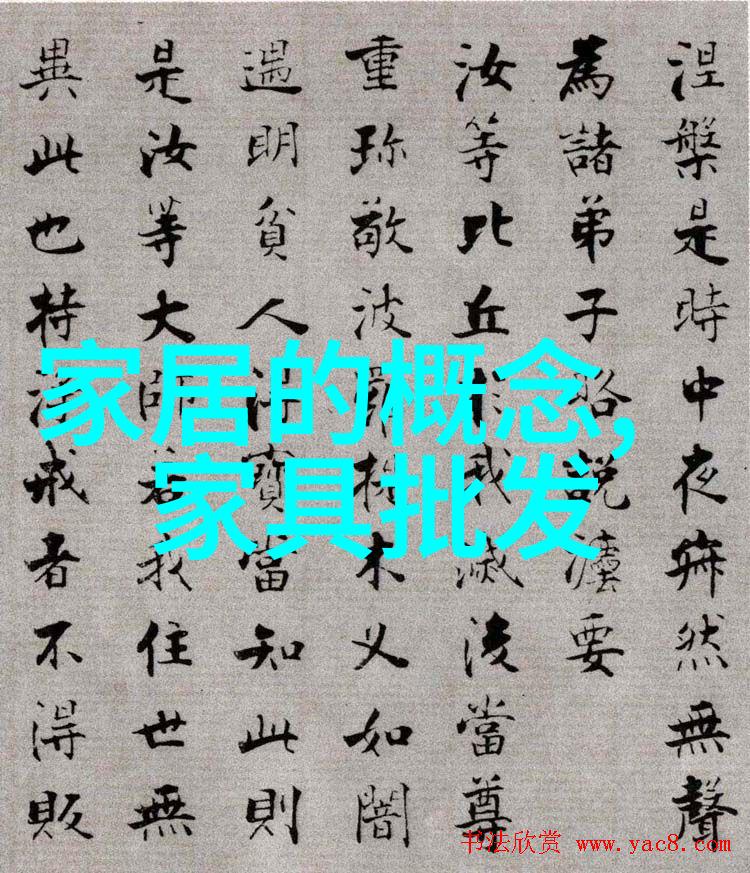 涅槃是時中夜寂然無聲
為諸弟子略說灋要
汝等比丘於我滅後當尊
重珎敬波羅提木叉如闇
遇明貧人得寶當知此則
是汝等大師若我住世無
異此也持淨戒者不得販
家居的概念,
家具批发
书法欣赏 www.yac8.com